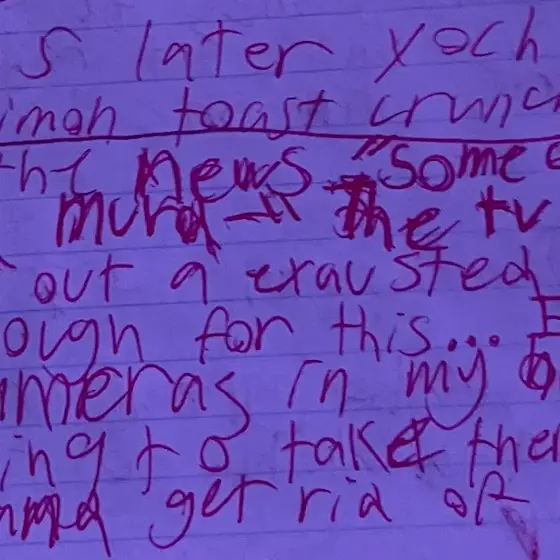 s later yoch
imon toast crunc
the news "some
murd-" the tv
out a exausted
ough for this...
ameras in my
ing to take the
get rid of